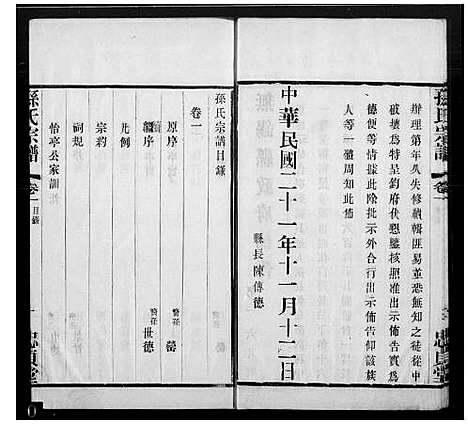 孫氏宗譜
卷一
辦理第年久失修續輯匪易董恐無知之徒從中
破壞為特呈鈞府伏懇鑒核照准出示佈告以為
德便等情據此除批示外合行出示佈告仰該族
人等一體周知此佈
縣長陳傳德
中華民國二十一年十一月十二日
孫氏宗譜目錄
卷一
原序
續序
凡例
宗約
祠規
怡亭公家訓
裔孫
裔孫 世德
孫氏宗譜
卷一
目錄
一
忠貞堂